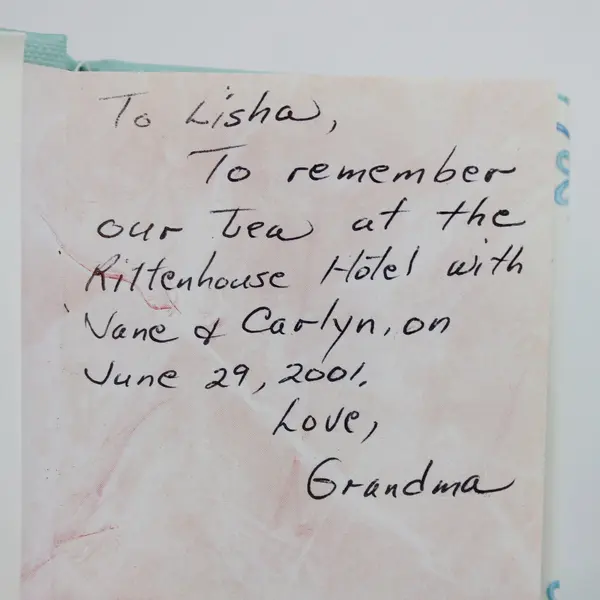 To Lisha,
To remember
our Tea at the
Rittenhouse Hotel with
Jane & Carlyn, on
June 29, 2001.
Love,
Grandma